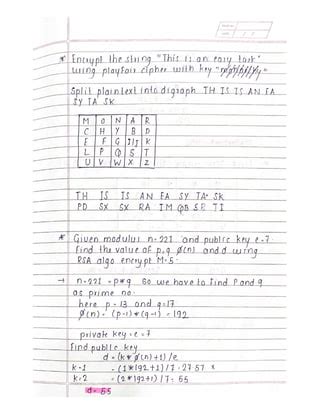 * Encrypt the string "This is an easy task"
using playfair cipher with key "
Split plaintext into digraph TH IS IS AN EA
SY TA SK
M O N A R
C H Y B D
E F G I/J K
L P Q S T
U V W X Z
TH IS IS AN EA SY TA SK
PD SX SX RA IM QB SR TI
* Given modulus n=221 and public key e=7.
Find the value of p,q φ(n) and d using
RSA algo encrypt M=5.
→ n=221 = p*q So we have to find P and q
as prime no.
here p=13 and q=17
φ(n) = (p-1)*(q-1) = 192
private key = e = 7
Find public key
d = (k* φ(n)+1)/e
k=1 = (1*192+1)/7 = 27.57 x
k=2 = (2*192+1)/7 = 55
d=55